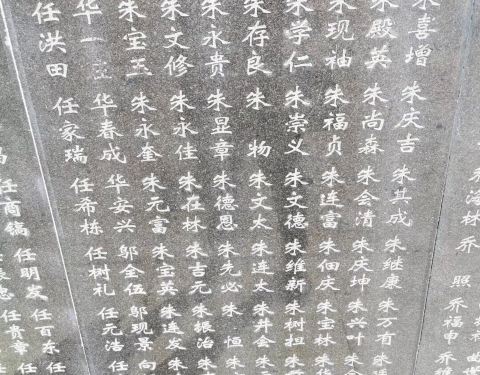 乔
照
乔福申
朱喜增 朱庆吉 朱其成 朱继康 朱万有 朱
殿英 朱尚森 朱会清 朱庆坤 朱兴叶
现袖 朱福贞 朱连富 朱佃庆 朱宝林
朱学仁 朱崇义 朱文德 朱维新 朱树担
朱存良 朱物 朱文太 朱连太 朱井会
朱永贵 朱显章 朱德恩 朱先必 朱恒
朱文修 朱永佳 朱在林 朱吉元 朱振治
朱宝玉 朱永奎 朱元富 朱宝英 朱连发
华一 华春成 华安兴 邬全伍 邬现景 向
任洪田 任家瑞 任希栋 任树礼 任元浩 任
任商镐 任明发 任百东 任
任贵章